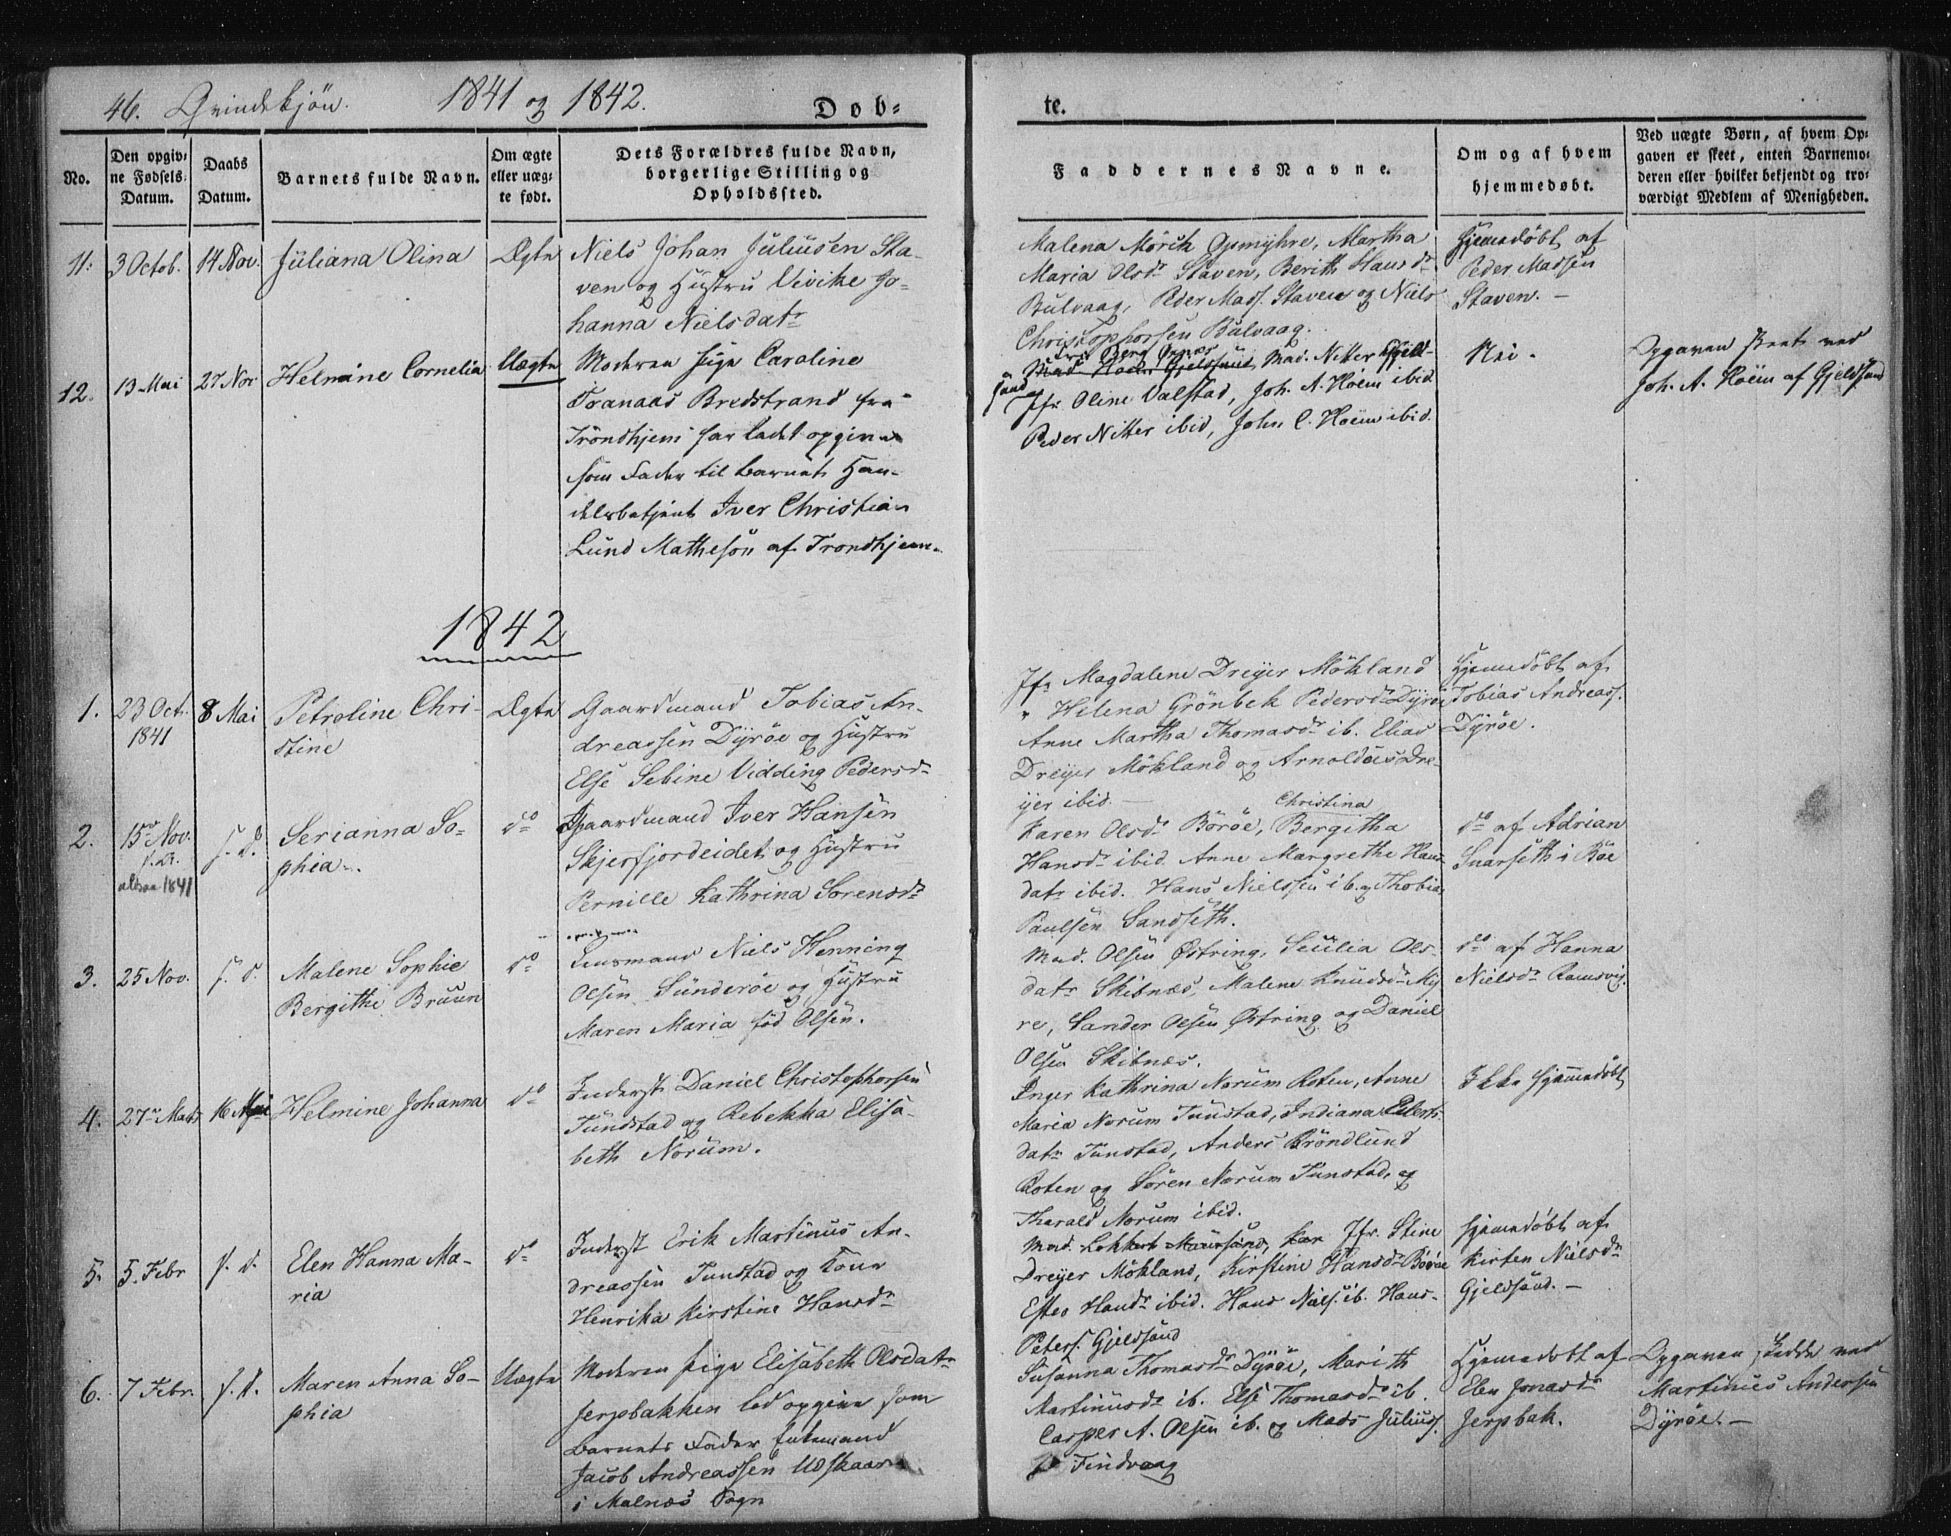 46. Qvindekjön. 1841 og 1842. Døb-
te.
No.
Den opgiv-
ne Fødsels-
Datum.
Daabs
Datum.
Barnets fulde Navn.
Om ægte
eller uæg-
te født.
Dets Forældres fulde Navn,
borgerlige Stilling og
Opholdssted.
Faddernes Navne.
Om og af hvem
hjemmedøbt.
Ved uægte Børn, af hvem Op-
gaven er skeet, enten Barnemo-
deren eller hvilket bekjendt og tro-
værdigt Medlem af Menigheden.
11.
3 Octob.
14 Nov.
Juliana Olina
Ægte
Niels Johan Juliusen Sta-
ven og Hustru Vivike Jo-
hanna Nielsdatr
Malena Mörch Opmyhre, Martha
Maria Olsdr Staven, Berith Hansdr
Bulvaag, Peder Mads. Staven og Niels
Christophorsen Bulvaag.
Hjemedöbt af
Peder Madsen
Staven. -
12.
13 Mai
27 Nov
Helmine Cornelia
Uægte
Moderen Pige Caroline
Tranaas Bredstrand fra
Trondhjem har ladet opgive
som Fader til Barnet Han-
delsbetjent Iver Christian
Lund Matheson af Trondhjem.
Mad. Hoem Gjeldsund Mad. Nitter Gjeld-
sund
Jfr Oline Valstad, Joh. A. Höem ibid
Peder Nitter ibid, John C. Hoem ibid.
Nei.
Opgaven skeet ved
Joh. A. Höem af Gjeldsund
1842
1.
23 Oct.
1841
8 Mai
Petroline Chri-
stine
Ægte
Gaardmand Tobias An-
dreassen Dyröe og Hustru
Else Sebine Vidding Pedersdr
Jfr Magdalene Dreyer Mökland
" Helena Grönbek Pedersdr Dyröe
Anne Martha Thomasdr ib. Elias
Dreyer Mökland og Arnoldus Dre-
yer ibid. -
Hjemedöbt af
Tobias Andreass.
Dyröe.
2.
15de Nov.
altsaa 1841
s. d.
Serianna So-
phia.
do
Gaardmand Iver Hansen
Skjerfjordeidet og Hustru
Pernille Kathrina Sorensdr
Christina
Karen Olsdr Börøe, Bergitha
Hansdr ibid. Anne Margrethe Hans-
datr ibid. Hans Nielssen ib. og Thobias
Paulsen Sandseth.
do af Adrian
Snarseth i Böe
3.
25 Nov.
s. d.
Malene Sophie
Bergithe Bruun
do
Lensmand Niels Henning
Olsen Sunderöe og Hustru
Maren Maria föd Olsen.
Mad. Olsen Østring, Secilia Ols-
datr Skibnæs, Malene Knudsdr My-
re, Sander Olsen Østring og Daniel
Olsen Skibnæs.
do af Hanna
Nielsdr Ramsvig.
4.
27de Marts
16 Mai
Helmine Johanna
do
Inderst Daniel Christophorsen
Tunstad og Rebekka Elisa-
beth Norum.
Inger Kathrina Norum Roten, Anne
Maria Norum Tunstad, Indiana Eilerts-
datr Tunstad, Anders Bröndlund
Roten og Sören Norum Tunstad, og
Tharald Norum ibid.
Ikke hjemmedöbt
5.
5. Febr
s. d.
Elen Hanna Ma-
ria
do
Inderst Erik Martinus An-
dreassen Tunstad og Kone
Henrika Kirstine Hansdr
Mad. Lokkert Maursund, Jfr. Stine
Dreyer Mökland, Kirstine Hansdr Börøe
Ester Hansdr ibid. Hans Niels. ib. Hans
Peters. Gjeldsund
Hjemedöbt af
Kirsten Nielsdr
Gjeldsund. -
6.
7 Febr.
s. d.
Maren Anna So-
phia
Uægte
Moderen Pige Elisabeth Olsdatr
Jerpbakken lod opgive som
Barnets Fader Enkemand
Jacob Andreassen Udskaar
i Malnæs Sogn
Susanna Thomasdr Dyröe, Marith
Martinusdr ib. Else Thomasdr ib.
Casper A. Olsen ib. og Mads Julius.
Findvaag
Hjemedöbt af
Elen Jonasdr
Jerpbak.
Opgaven skedde ved
Martinus Andersen
Dyröe. -